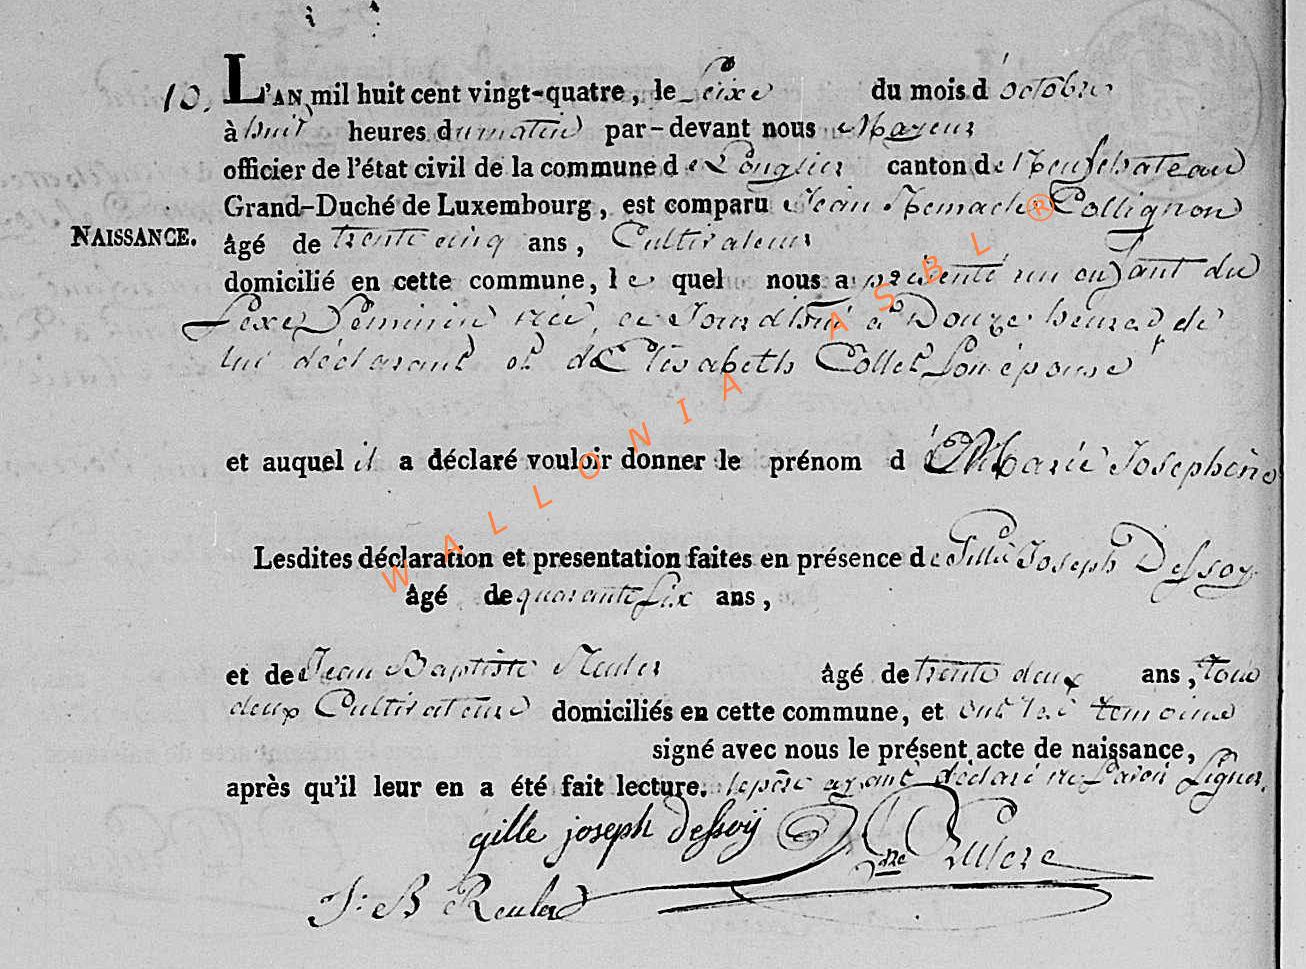 10. L'AN mil huit cent vingt-quatre, le Seize du mois d'octobre
à huit heures du matin par-devant nous Mayeur
officier de l'état civil de la commune de Longlier canton de Neufchateau
Grand-Duché de Luxembourg, est comparu Jean Collignon
NAISSANCE. âgé de trente cinq ans, Cultivateur
domicilié en cette commune, le quel nous a présenté un enfant du
Sexe Feminin née, ce Jourdhui a Douze heures de
lui déclarant et de Elisabeth Collet Son épouse
et auquel il a déclaré vouloir donner le prénom de Marie Josephine
Lesdites déclaration et presentation faites en présence de Gille Joseph Dessoy
âgé de quarante Six ans,
et de Jean Baptiste Reuler âgé de trente deux ans, tous
deux Cultivateurs domiciliés en cette commune, et ont les temoins
signé avec nous le présent acte de naissance,
après qu'il leur en a été fait lecture. le père ayant déclaré ne Savoir Signer.
gille joseph dessoÿ
J: B Reuler
WALLONIA ASBL ®